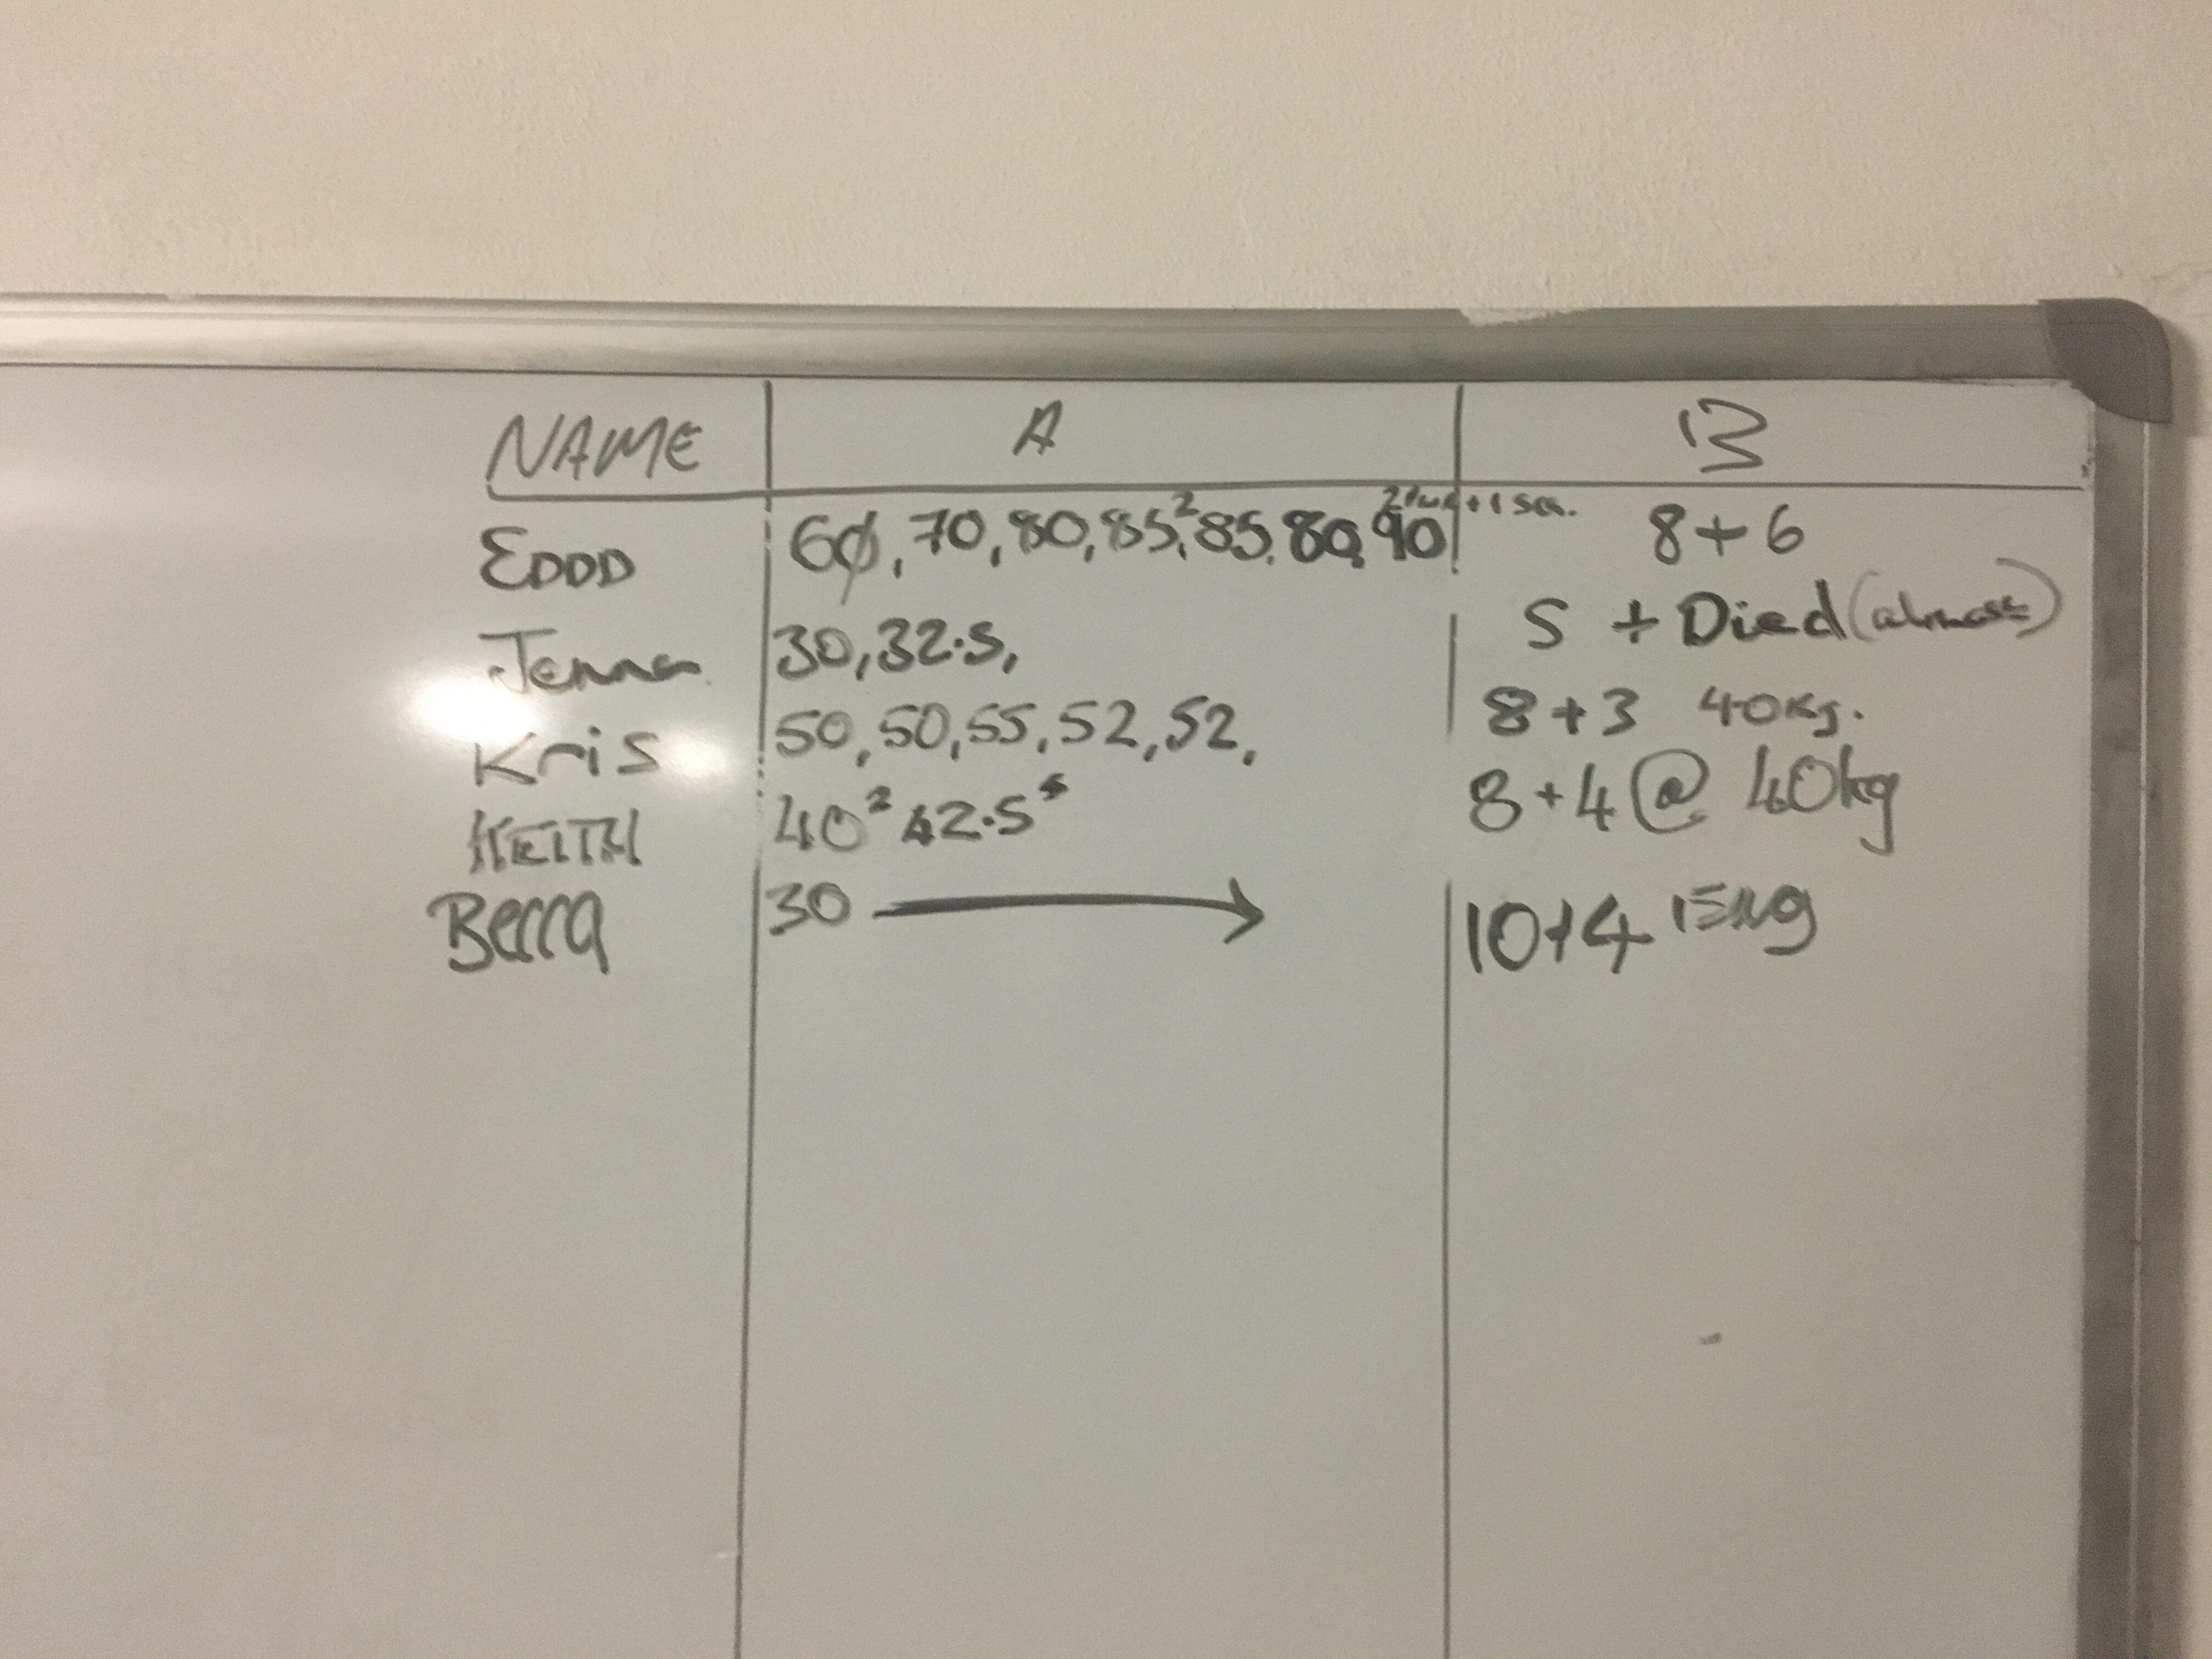 NAME A B
EDDD 60, 70, 80, 85², 85, 80, 90 8+6
Jenna 30, 32.5, 5 + Died (almost)
Kris 50, 50, 55, 52, 52, 8+3 40kg.
KEITH 40² 42.5⁵ 8+4 @ 40kg
Becca 30 → 10+4 15kg